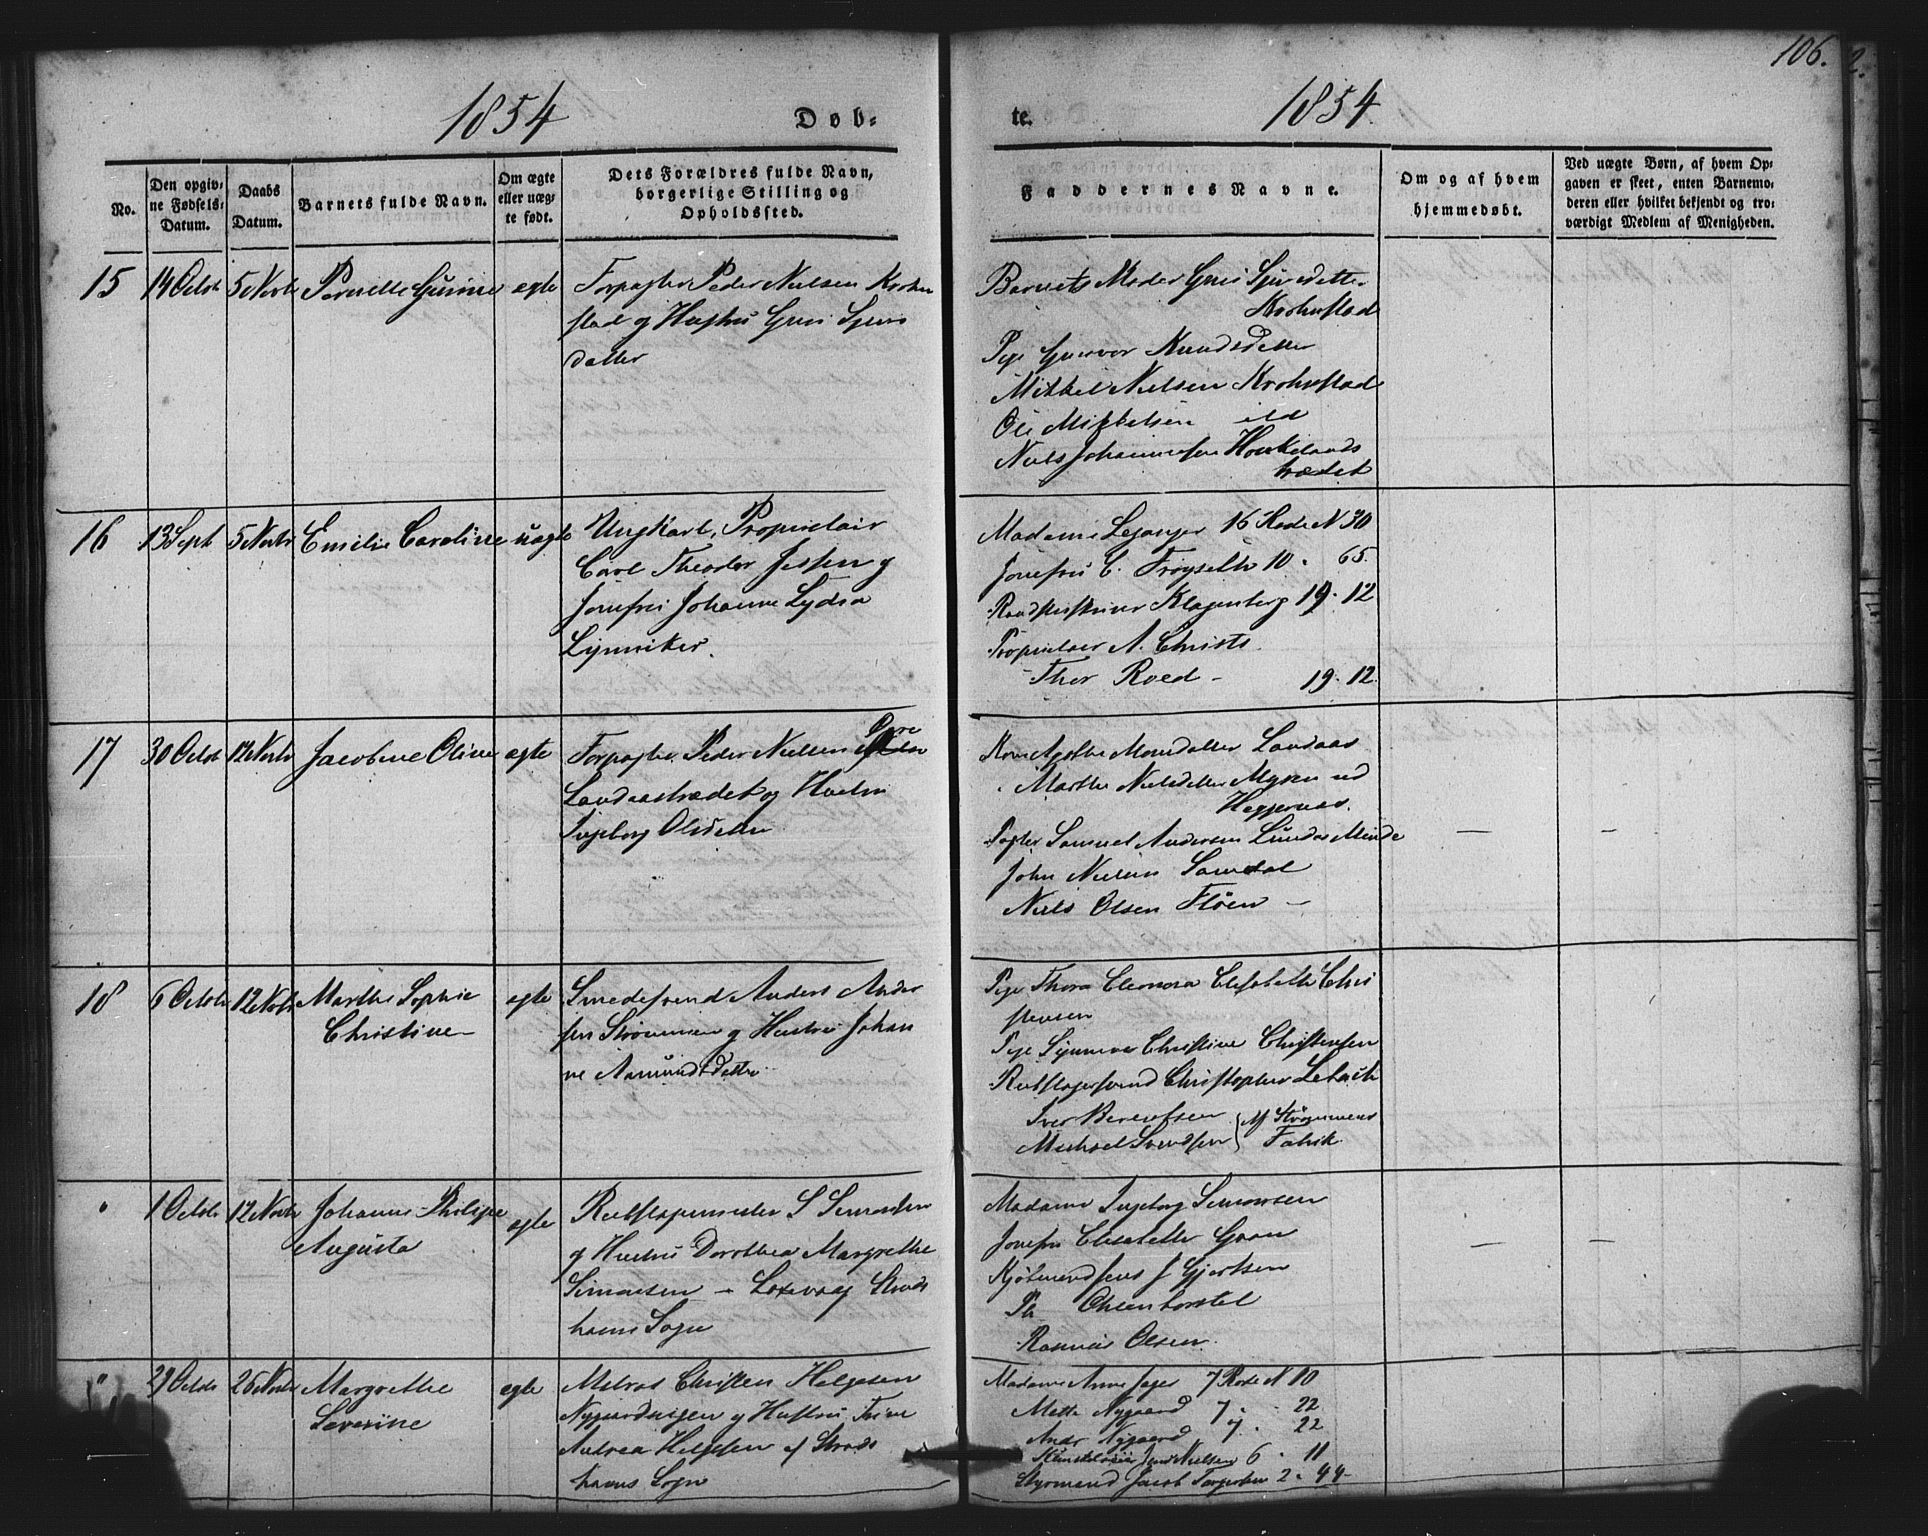 106.
2.
1854
Døb-
te.
1854
No.
Den opgiv-
ne Fødsels-
Datum.
Daabs
Datum.
Barnets fulde Navn.
Om ægte
eller uæg-
te født.
Dets Forældres fulde Navn,
borgerlige Stilling og
Opholdssted.
Faddernes Navne.
Om og af hvem
hjemmedøbt.
Ved uægte Børn, af hvem Op-
gaven er skeet, enten Barnemo-
deren eller hvilket bekjendt og tro-
værdigt Medlem af Menigheden.
15 14 Octob 5 Novbr Pernille Gurine ægte
Forpagter Peder Nielsen Krohn
stad og Hustru Guri Sjurs
datter
Barnets Moder Guri Sjursdatter
Krohnstad
Pige Gunvor Knudsdatter
Mikkel Nielsen Krohnstad
Ole Mikkelsen
Niels Johannesen Haukelands
trædet
16 13 Sept 5 Novbr Emilie Caroline uægte
Ungkarl, Proprietair
Carl Theodor Jessen og
Jomfru Johanne Lydia
Madame Leganger 16 Rode N 30
Jomfru C. 10 - 65.
Klagenberg 19 - 12
Proprietair A. Christi
Thor Roed - 19 - 12
17 30 Octob 12 Novbr Jacobine Oline ægte
Forpagter Peder Nielsen Øvre
Landaastrædet og Hustru
Ingeborg Olsdatter
Kone Agathe Monsdatter Landaas
Marthe Nielsdatter Myren ved
Heggernæs.
Pagter Samuel Andersen Lundas Minde
John Nielsen
Niels Olsen Fløen -
— —
18 6 Octobr 12 Novbr Marthe Sophie
Christine
ægte
Smedesvend Anders Ander
sen Strømmen og Hustru Johan
ne Aamundsdatter
Pige Thora Eleonora Elisabeth Chri
stensen
Pige Synneva Christine Christensen
Rebslagersvend Christopher
Iver Berentsen
Michael Svendsen
M Strømmens
Fabrik
" 1 Octobr 12 Novbr Johanne Philippe
Augusta
ægte
Rebslagermester S Simonsen
og Hustru Dorothea Margrethe
Simonsen - Laxevaag Struds
havns Sogn
Madame Ingeborg Simonsen
Jomfru Elisabeth Graan
Kjøbmand Jens J Gjertsen
Ph
Rasmus Olsen.
— —
" 29 Octob 26 Novbr Margrethe
Severine
ægte
Matros Christen Helgesen
Nygaardsveien og Hustru Trine
Andrea Helgesen af Struds
havns Sogn
Madame Anne Jager 7 Rode N 10
Mette Nygaard 7 - 22
Andr Nygaard 7 - 22
Nielsen 6 - 11
Styrmand Jacob Torgersen 2 - 44